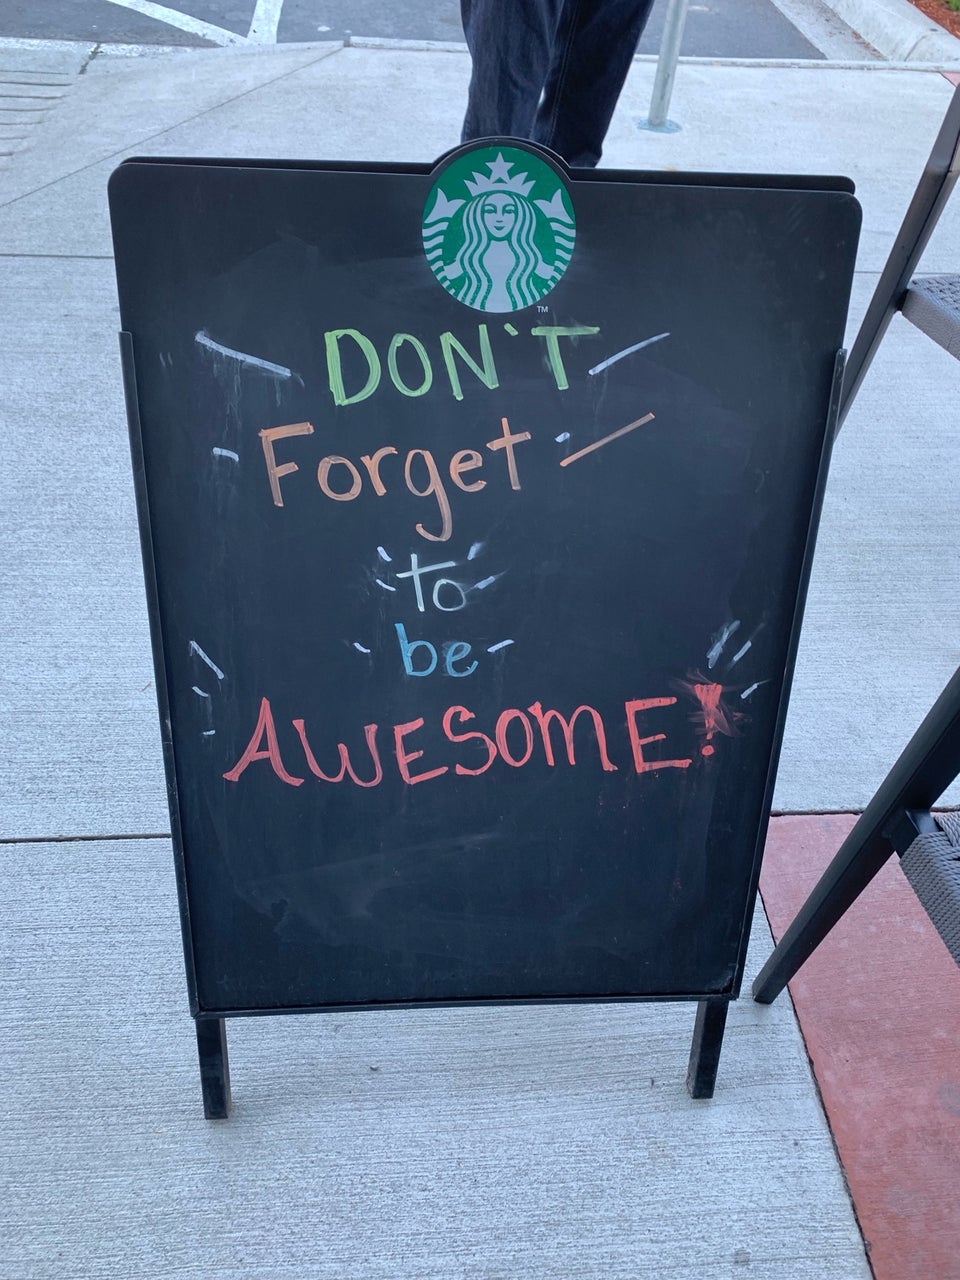 TM
DON'T
Forget
to
be
AWESOME!